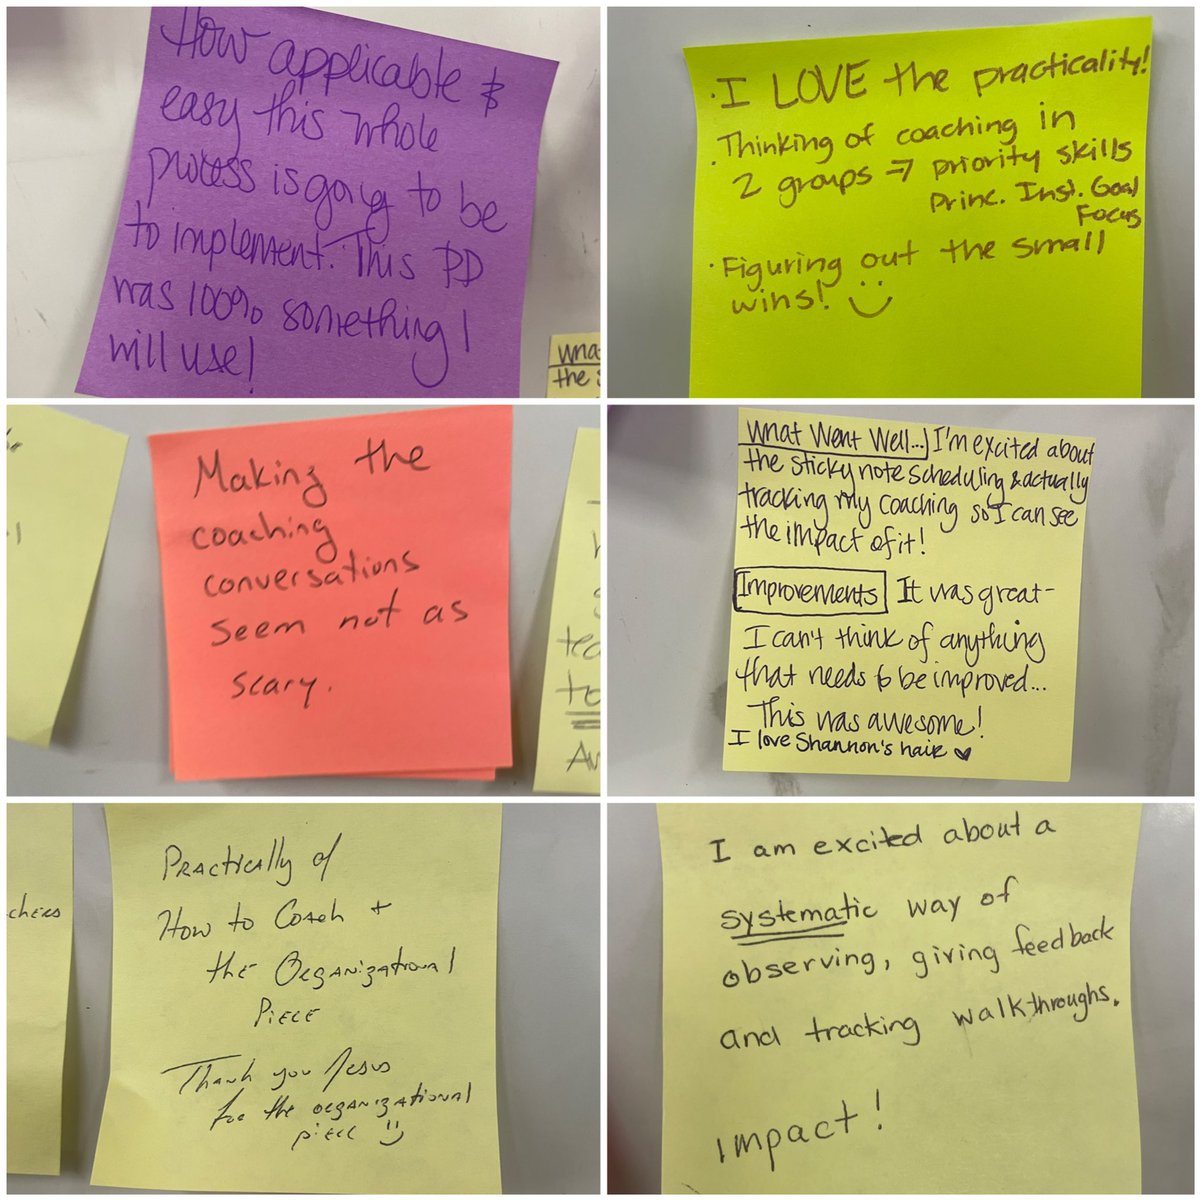 How applicable &
easy this whole
process is going to be
to implement. This PD
was 100% something I
will use!
What
the
· I LOVE the practicality!
· Thinking of coaching in
2 groups → priority skills
Princ. Inst. Goal
Focus
· Figuring out the small
wins! :)
Making the
coaching
conversations
seem not as
scary.
What Went Well... I'm excited about
the sticky note scheduling & actually
tracking my coaching so I can see
the impact of it!
Improvements It was great-
I can't think of anything
that needs to be improved...
This was awesome!
I love Shannon's hair ♥
chers
Practically of
How to Coach +
the Organizational
Piece
Thank you Jesus
for the organizational
piece :)
I am excited about a
systematic way of
observing, giving feedback
and tracking walkthroughs.
Impact!